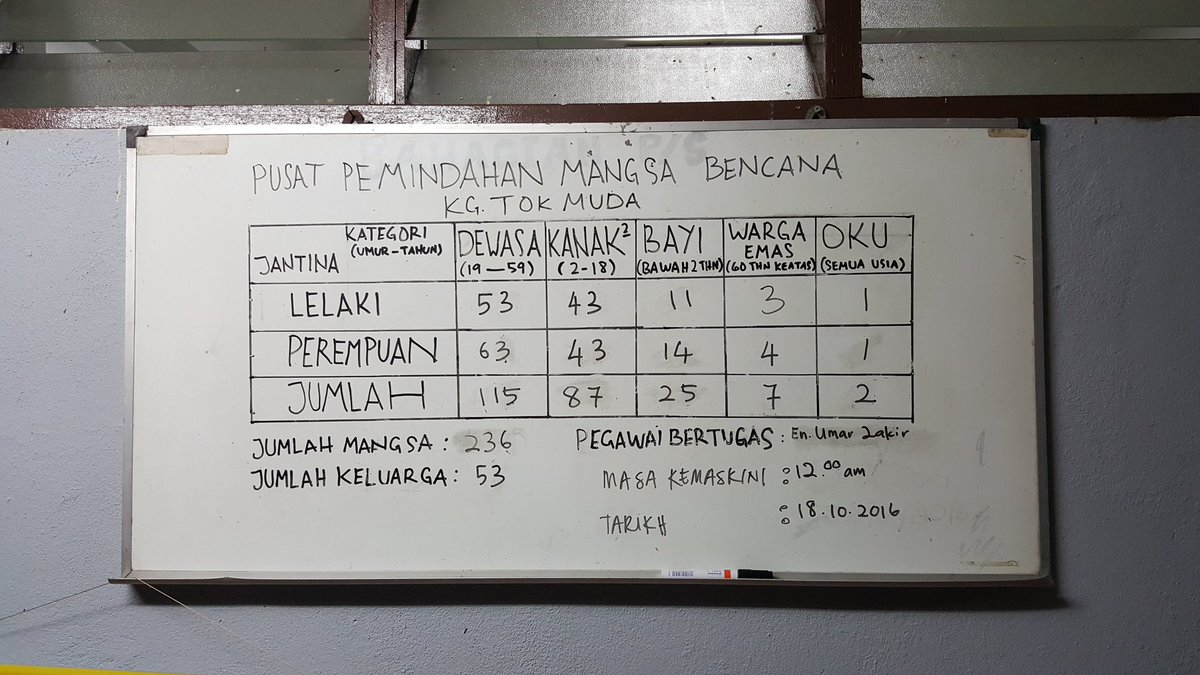 PUSAT PEMINDAHAN MANGSA BENCANA
KG. TOK MUDA
KATEGORI (UMUR-TAHUN) JANTINA DEWASA (19-59) KANAK2 (2-18) BAYI (BAWAH 2 THN) WARGA EMAS (60 THN KEATAS) OKU (SEMUA USIA)
LELAKI 53 43 11 3 1
PEREMPUAN 63 43 14 4 1
JUMLAH 115 87 25 7 2
JUMLAH MANGSA : 236
JUMLAH KELUARGA : 53
PEGAWAI BERTUGAS : En. Umar Zakir
MASA KEMASKINI : 12.00 am
TARIKH : 18.10.2016